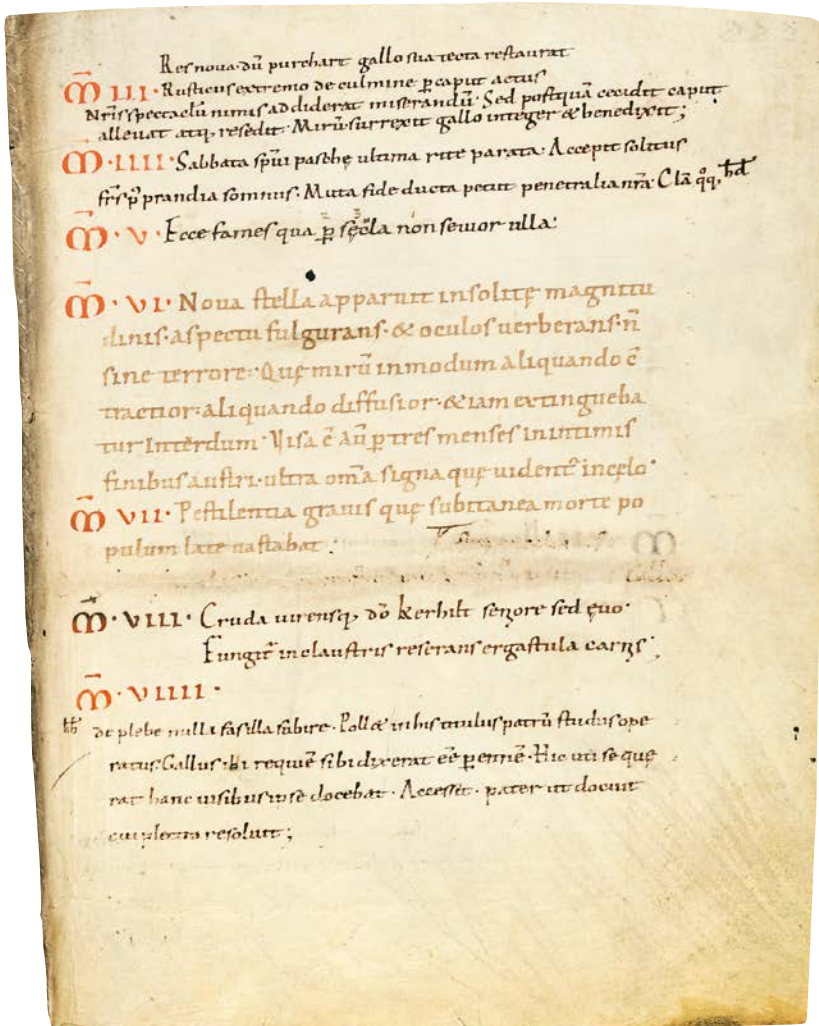 Res nova dū purchart gallo sua tecta restaurat
M̄ III · Rusticus extremo de culmine ꝑ caput actus
Nr̄is spectaclū nimis addiderat miserandū · Sed postquā cecidit caput
allevat atq; resedit · Mirū surrexit gallo integer & benedixit ;
M̄ · IIII · Sabbata spūi paschę ultima rite parata · Accepit solitus
fr̄s p̄ prandia somnus · Muta fide ducta petiit penetralia nr̄a · Clā q̊q; hd
M̄ · V · Ecce fames qua ꝑ sęc̄la non sevior ulla :
M̄ · VI · Nova stella apparuit insolitę magnitu
dinis · aspectu fulgurans · & oculos verberans · n̄
sine terrore · Quę mirū inmodum aliquando c̄
tractior · aliquando diffusior · & iam extingueba
tur Interdum · Visa ē aū ꝑ tres menses in intimis
finibus austri · ultra om̄a signa que uident᷑ in cęlo ·
M̄ VII · Pestilentia gravis quę subitanea morte po
pulum late vastabat ;
M̄ · VIII · Cruda virensq; dō kerhilt seniore sed ęvo ·
Fungit᷑ in claustris reserans ergastula carnis ;
M̄ · VIIII ·
hd de plebe nulla fas illa subire · Poll& in his titulus patrū studiis ope
ratus · Gallus · hi requiē sibi dixerat eē ꝑennē · Hic uti se quę
rat hanc visibus ipse docebat · Accessit · pater ut docuit
cui plectra resolvit ;